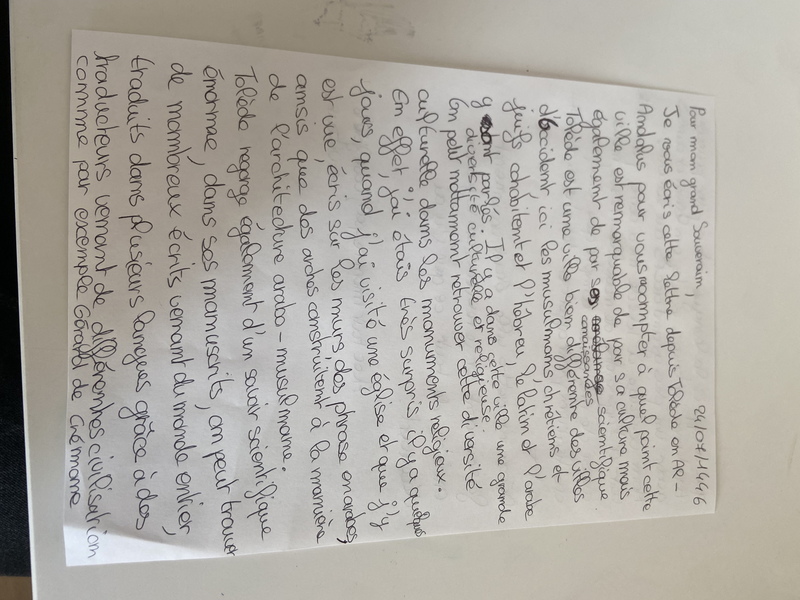 24/07/1446
Pour mon grand Souverain,
Je vous écris cette lettre depuis Tolède en Al-
Andalus pour vous recompter à quel point cette
ville est remarquable de par sa culture mais
également de par ses connaissances scientifique.
Tolède est une ville bien différente des villes
d'occident, ici les musulmans chrétiens et
juifs cohabitent et l'hébreu, le latin et l'arabe
y sont parlés. Il y a dans cette ville une grande
diversité culturelle et religieuse.
On peut notamment retrouver cette diversité
culturelle dans les monuments religieux.
En effet, j'ai étais très surpris il y a quelques
jours, quand j'ai visité une église et que j'y
est vue, écris sur les murs, des phrase en arabes,
ainsis que des arches construitent à la manière
de l'architecture arabo-musulmane.
Tolède regorge également d'un savoir scientifique
énorme, dans ses manuscrits, on peut trouver
de nombreux écrits venant du monde entier,
traduits dans plusieurs langues grâce à des
traducteurs venant de différentes civilisation
comme par exemple Gérard de Crémone